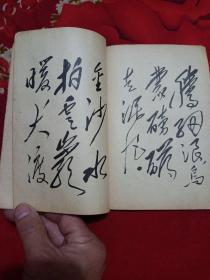 腾细浪乌
蒙磅礴
走泥丸
金沙水
拍云崖
暖大渡